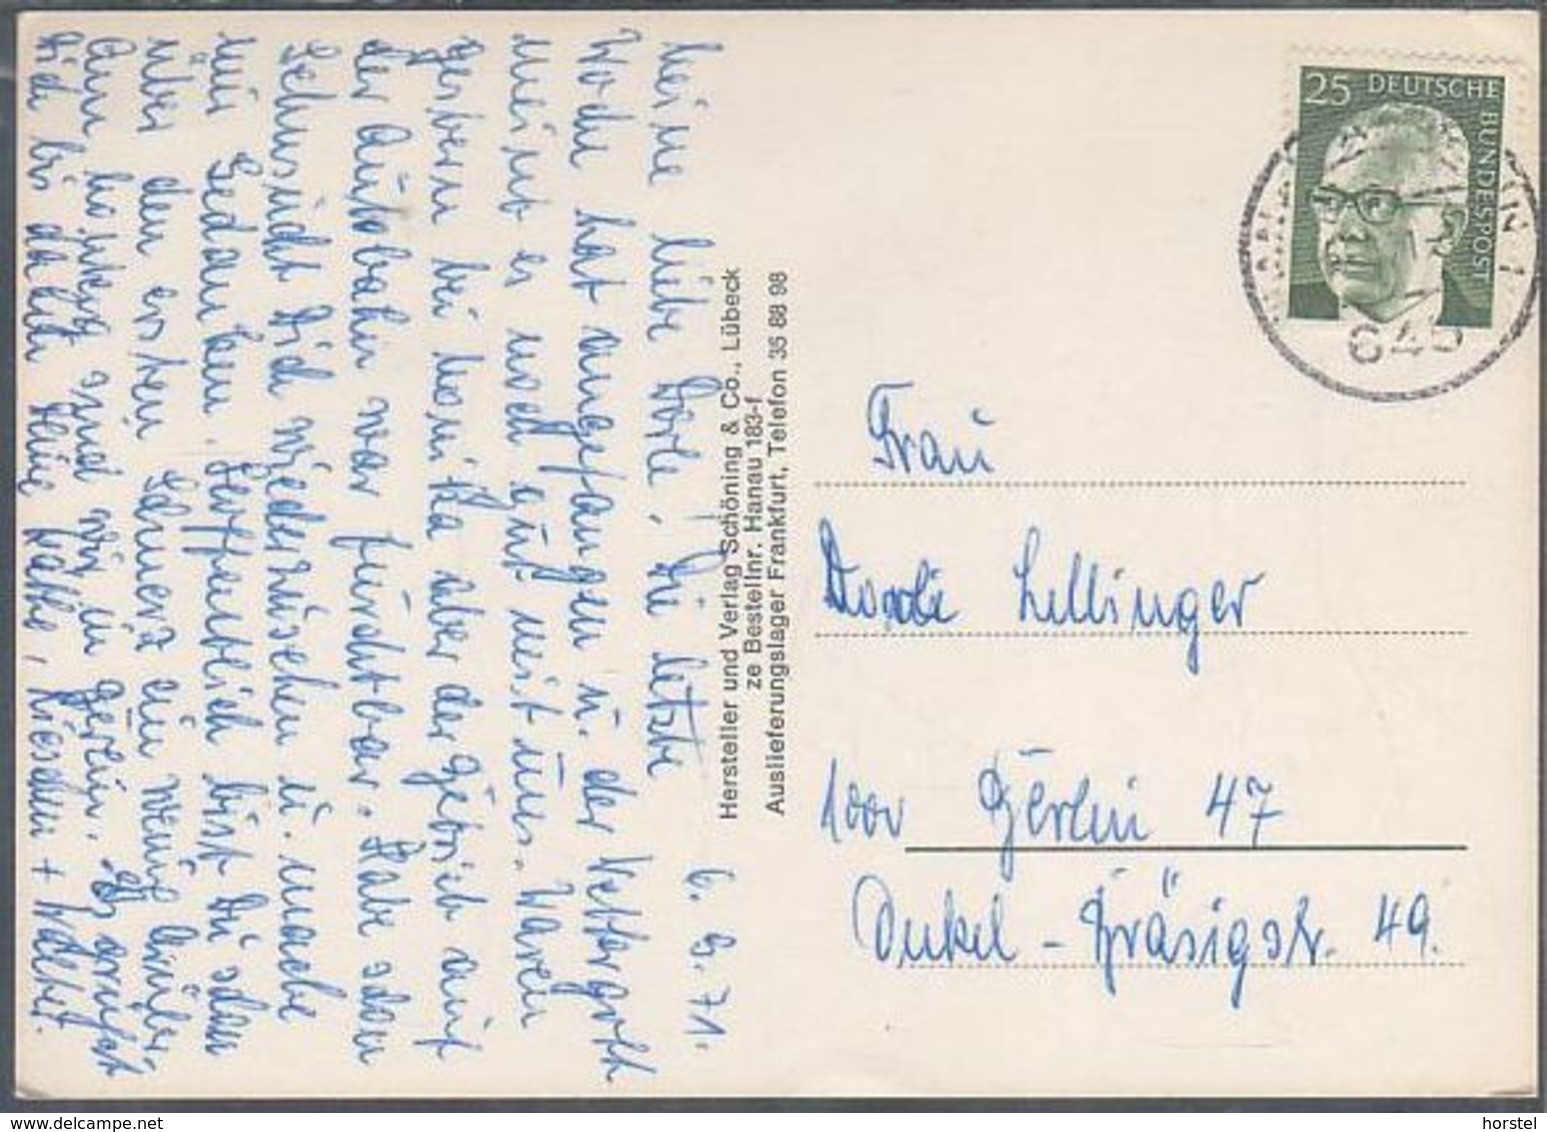 6. 9. 71.
Meine liebe Dorle! Die letzte
Woche hat angefangen u. der Wettergott
meint es noch gut mit uns. Waren
gestern bei Monika aber der Betrieb auf
der Autobahn war furchtbar. Habe schon
Sehnsucht Dich wiederzusehen u. mache
mir Gedanken. Hoffentlich bist Du schon
über den ersten Schmerz ein wenig hinüber.
Am Montag sind wir in Berlin. Es grüsst
Dich bis dahin Deine Käthe, + Walter.
Hersteller und Verlag Schöning & Co., Lübeck
ze Bestellnr. Hanau 183-f
Auslieferungslager Frankfurt, Telefon 35 88 98
25 DEUTSCHE BUNDESPOST
HANAU 1
645
Frau
Lellinger
1000 Berlin 47
Onkel-Bräsigstr. 49.
© delcampe.net
horstel